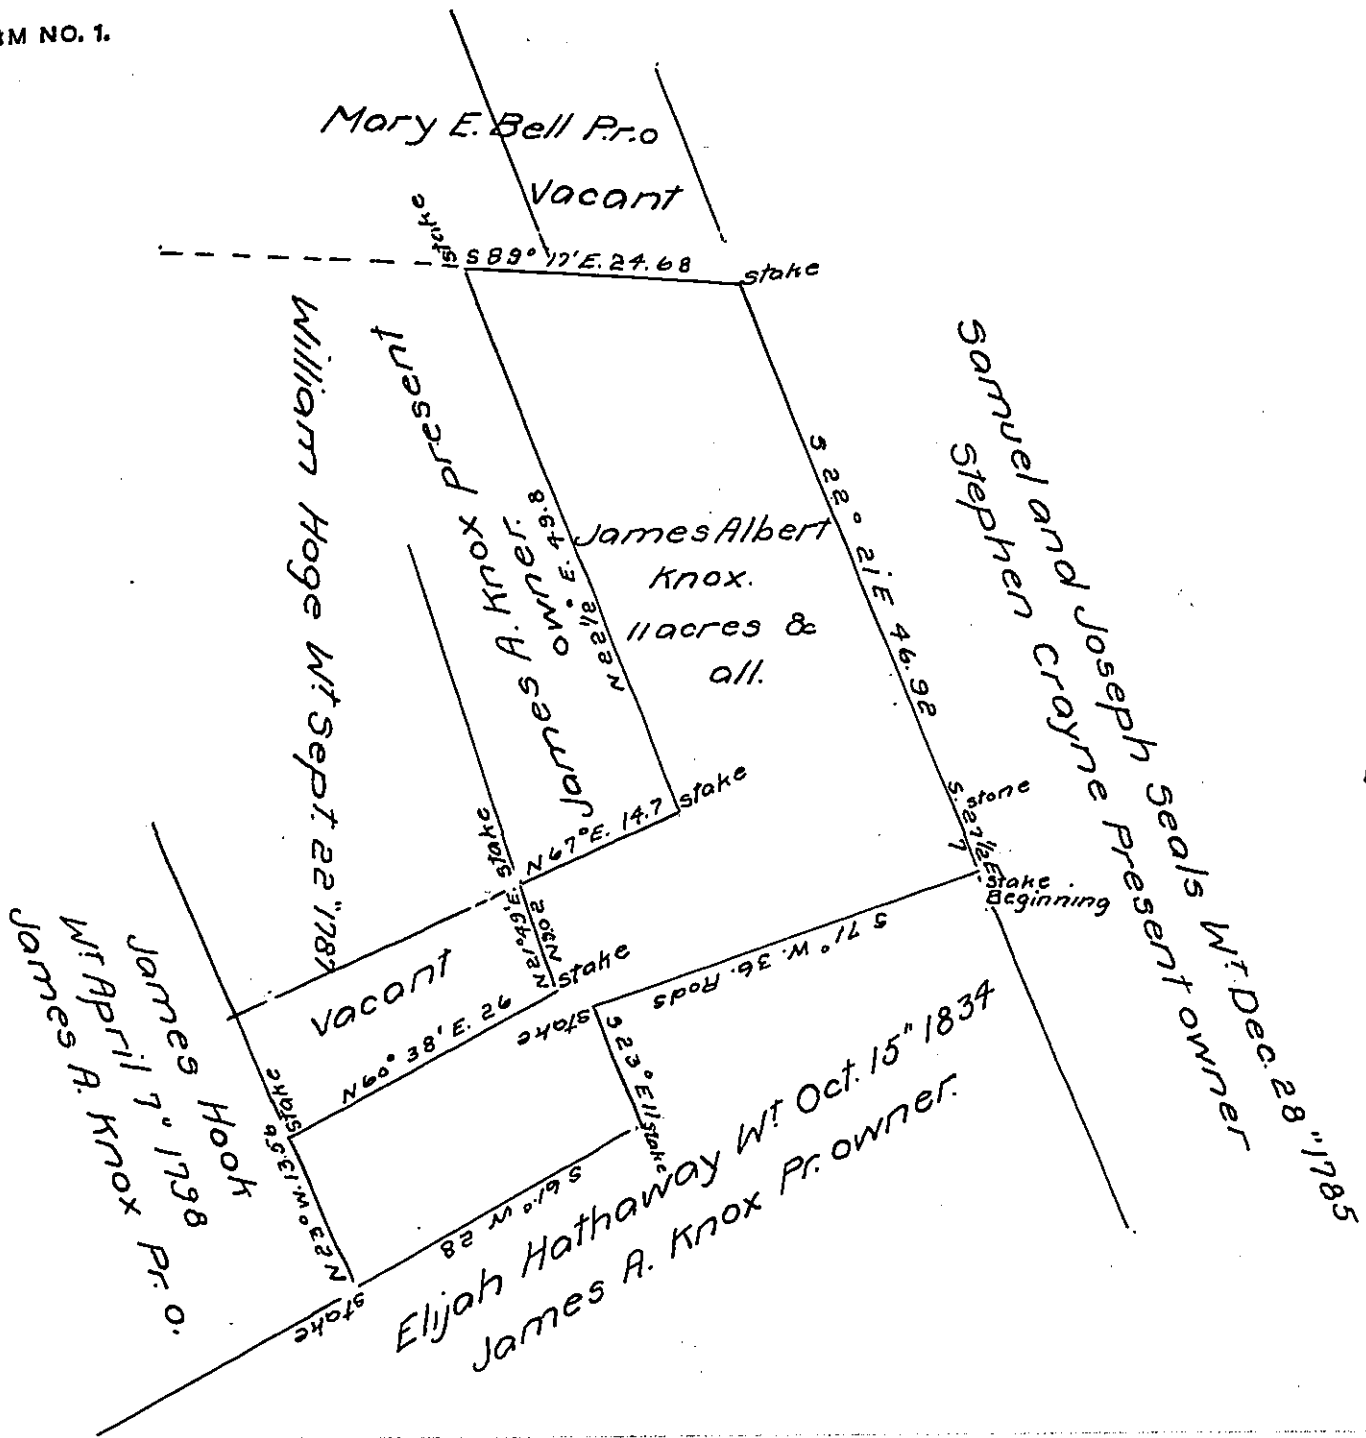 M NO. 1.
Mary E. Bell Pr.o
Vacant
stake
S 89° 17' E. 24.68
stake
William Hoge Wt. Sept. 22" 1787
James A. Knox present
owner.
N 22 1/2° E. 49.8
James Albert
Knox.
11 acres &
all.
S 22° 21' E 46.92
Samuel and Joseph Seals Wt. Dec. 28" 1785
Stephen Crayne Present owner
stone
S. 27 1/2 E
7
stake
Beginning
stake
N 67° E. 14.7
stake
N 21° 49' E.
stake
Vacant
N 60° 38' E. 26
S 71° W. 36. Rods
stake
S 23° E 11
stake
stake
N 23° W. 13.56
S 61° W 28
stake
James Hook
Wt April 7" 1798
James A. Knox Pr. o.
Elijah Hathaway Wt Oct. 15" 1834
James A. Knox Pr. owner.